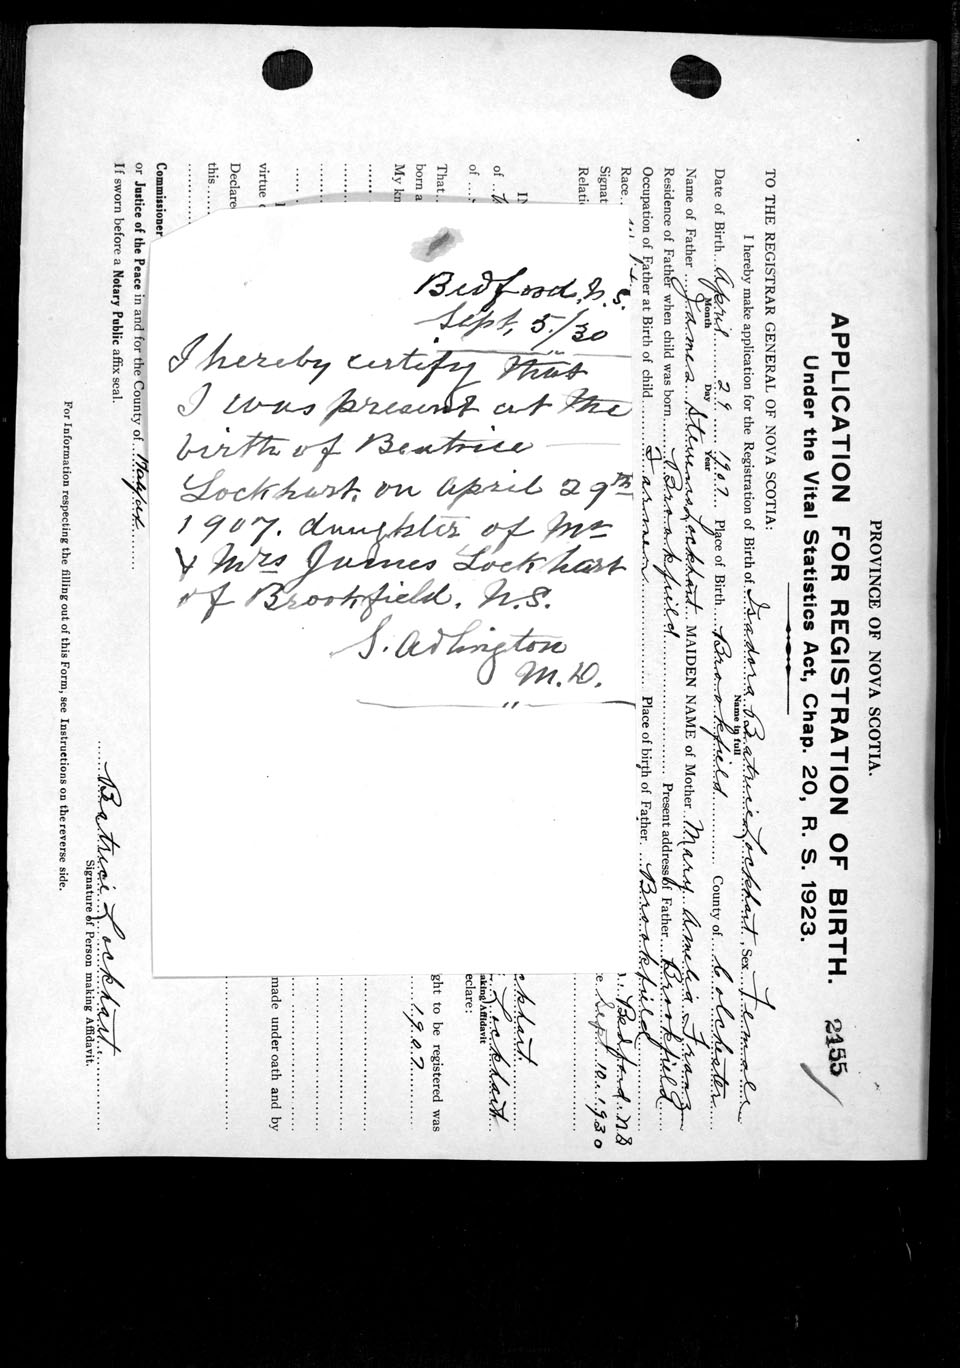 PROVINCE OF NOVA SCOTIA.
APPLICATION FOR REGISTRATION OF BIRTH. 2155
Under the Vital Statistics Act, Chap. 20, R. S. 1923.
TO THE REGISTRAR GENERAL OF NOVA SCOTIA:
I hereby make application for the Registration of Birth of Isadora Beatrice Lockhart, Sex Female
Name in full
Date of Birth April 29 1907 Place of Birth Brookfield County of Colchester
Month Day Year
Name of Father James Lockhart MAIDEN NAME of Mother Mary Amelia
Residence of Father when child was born Brookfield Present address of Father Brookfield
Occupation of Father at Birth of child Farmer Place of birth of Father Brookfield
Race Bedford N.S
Signat Sept 10 1930
Relati
IN ckhart
of Lockhart
of aking Affidavit
eclare:
That ght to be registered was
born a 1907
My kn
virtue made under oath and by
Declared
this
Commissioner
or Justice of the Peace in and for the County of Halifax
If sworn before a Notary Public affix seal.
Beatrice Lockhart
Signature of Person making Affidavit.
For Information respecting the filling out of this Form, see Instructions on the reverse side.
Bedford, N.S.
Sept, 5/30
I hereby certify that
I was present at the
birth of Beatrice
Lockhart, on April 29th
1907. daughter of Mr
& Mrs James Lockhart
of Brookfield. N.S.
S. Adlington
M.D.